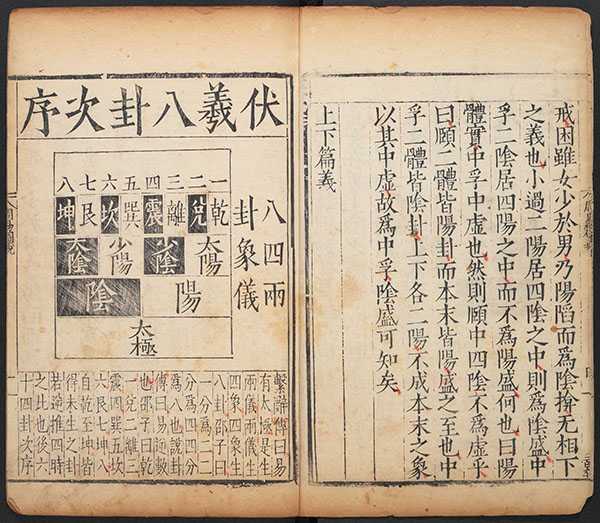 戒困雖女少於男乃陽陷而爲陰揜无相下
之義也小過二陽居四陰之中則爲陰盛中
孚二陰居四陽之中而不爲陽盛何也曰陽
體實中孚中虛也然則頤中四陰不爲虛乎
曰頤二體皆陽卦而本末皆陽盛之至也中
孚二體皆陰卦上下各二陽不成本末之象
以其中虛故爲中孚陰盛可知矣
上下篇義
伏羲八卦次序
兩儀
四象
八卦
一二三四五六七八
乾兌離震巽坎艮坤
太陽 少陰 少陽 太陰
陽 陰
太極
繫辭傳曰易
有太極是生
兩儀兩儀生
四象四象生
八卦邵子曰
一分爲二二
分爲四四分
爲八也說卦
傳曰易逆數
也邵子曰乾
一兌二離三
震四巽五坎
六艮七坤八
自乾至坤皆
得未生之卦
若逆推四時
之比也後六
十四卦次序